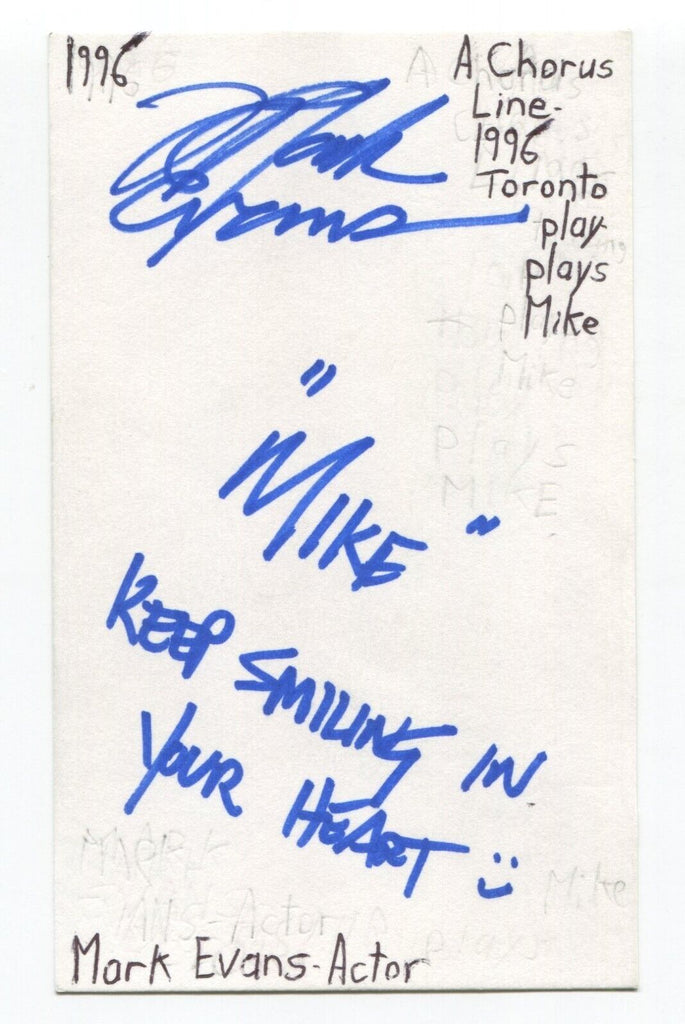 1996
A Chorus
Line-
1996
Toronto
play
plays
Mike
Mark
Evans
"
MIKE"
KEEP SMILING IN
YOUR HEART :)
Mark Evans-Actor